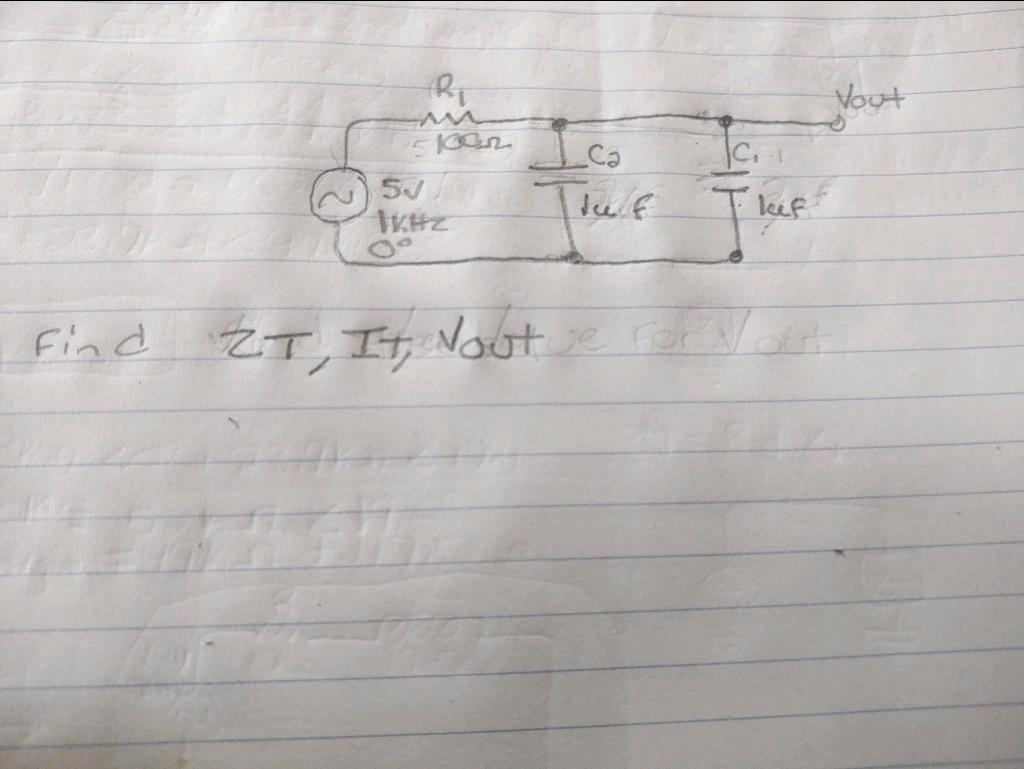 R1
Vout
100Ω
C2
C1
5V
1KHz
0°
1uf
1uF
Find ZT, IT, Vout